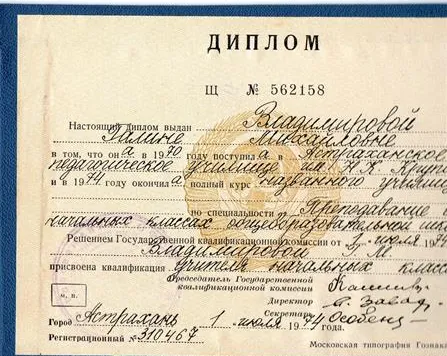 ДИПЛОМ
Щ № 562158
Настоящий диплом выдан Владимировой
Галине Михайловне
в том, что он а в 1970 году поступил а в Астраханское
педагогическое училище им Н.К. Круп
и в 1974 году окончил а полный курс названного училищ
по специальности Преподавание
начальных классах общеобразовательной шк
Решением Государственной квалификационной комиссии от июля 19
Владимировой Г. М.
присвоена квалификация учителя начальных класс
Председатель Государственной
квалификационной комиссии
Директор
Секретарь
м. п.
Город Астрахань 1 июля 1974 года.
Регистрационный № 310467
Московская типография Гознак